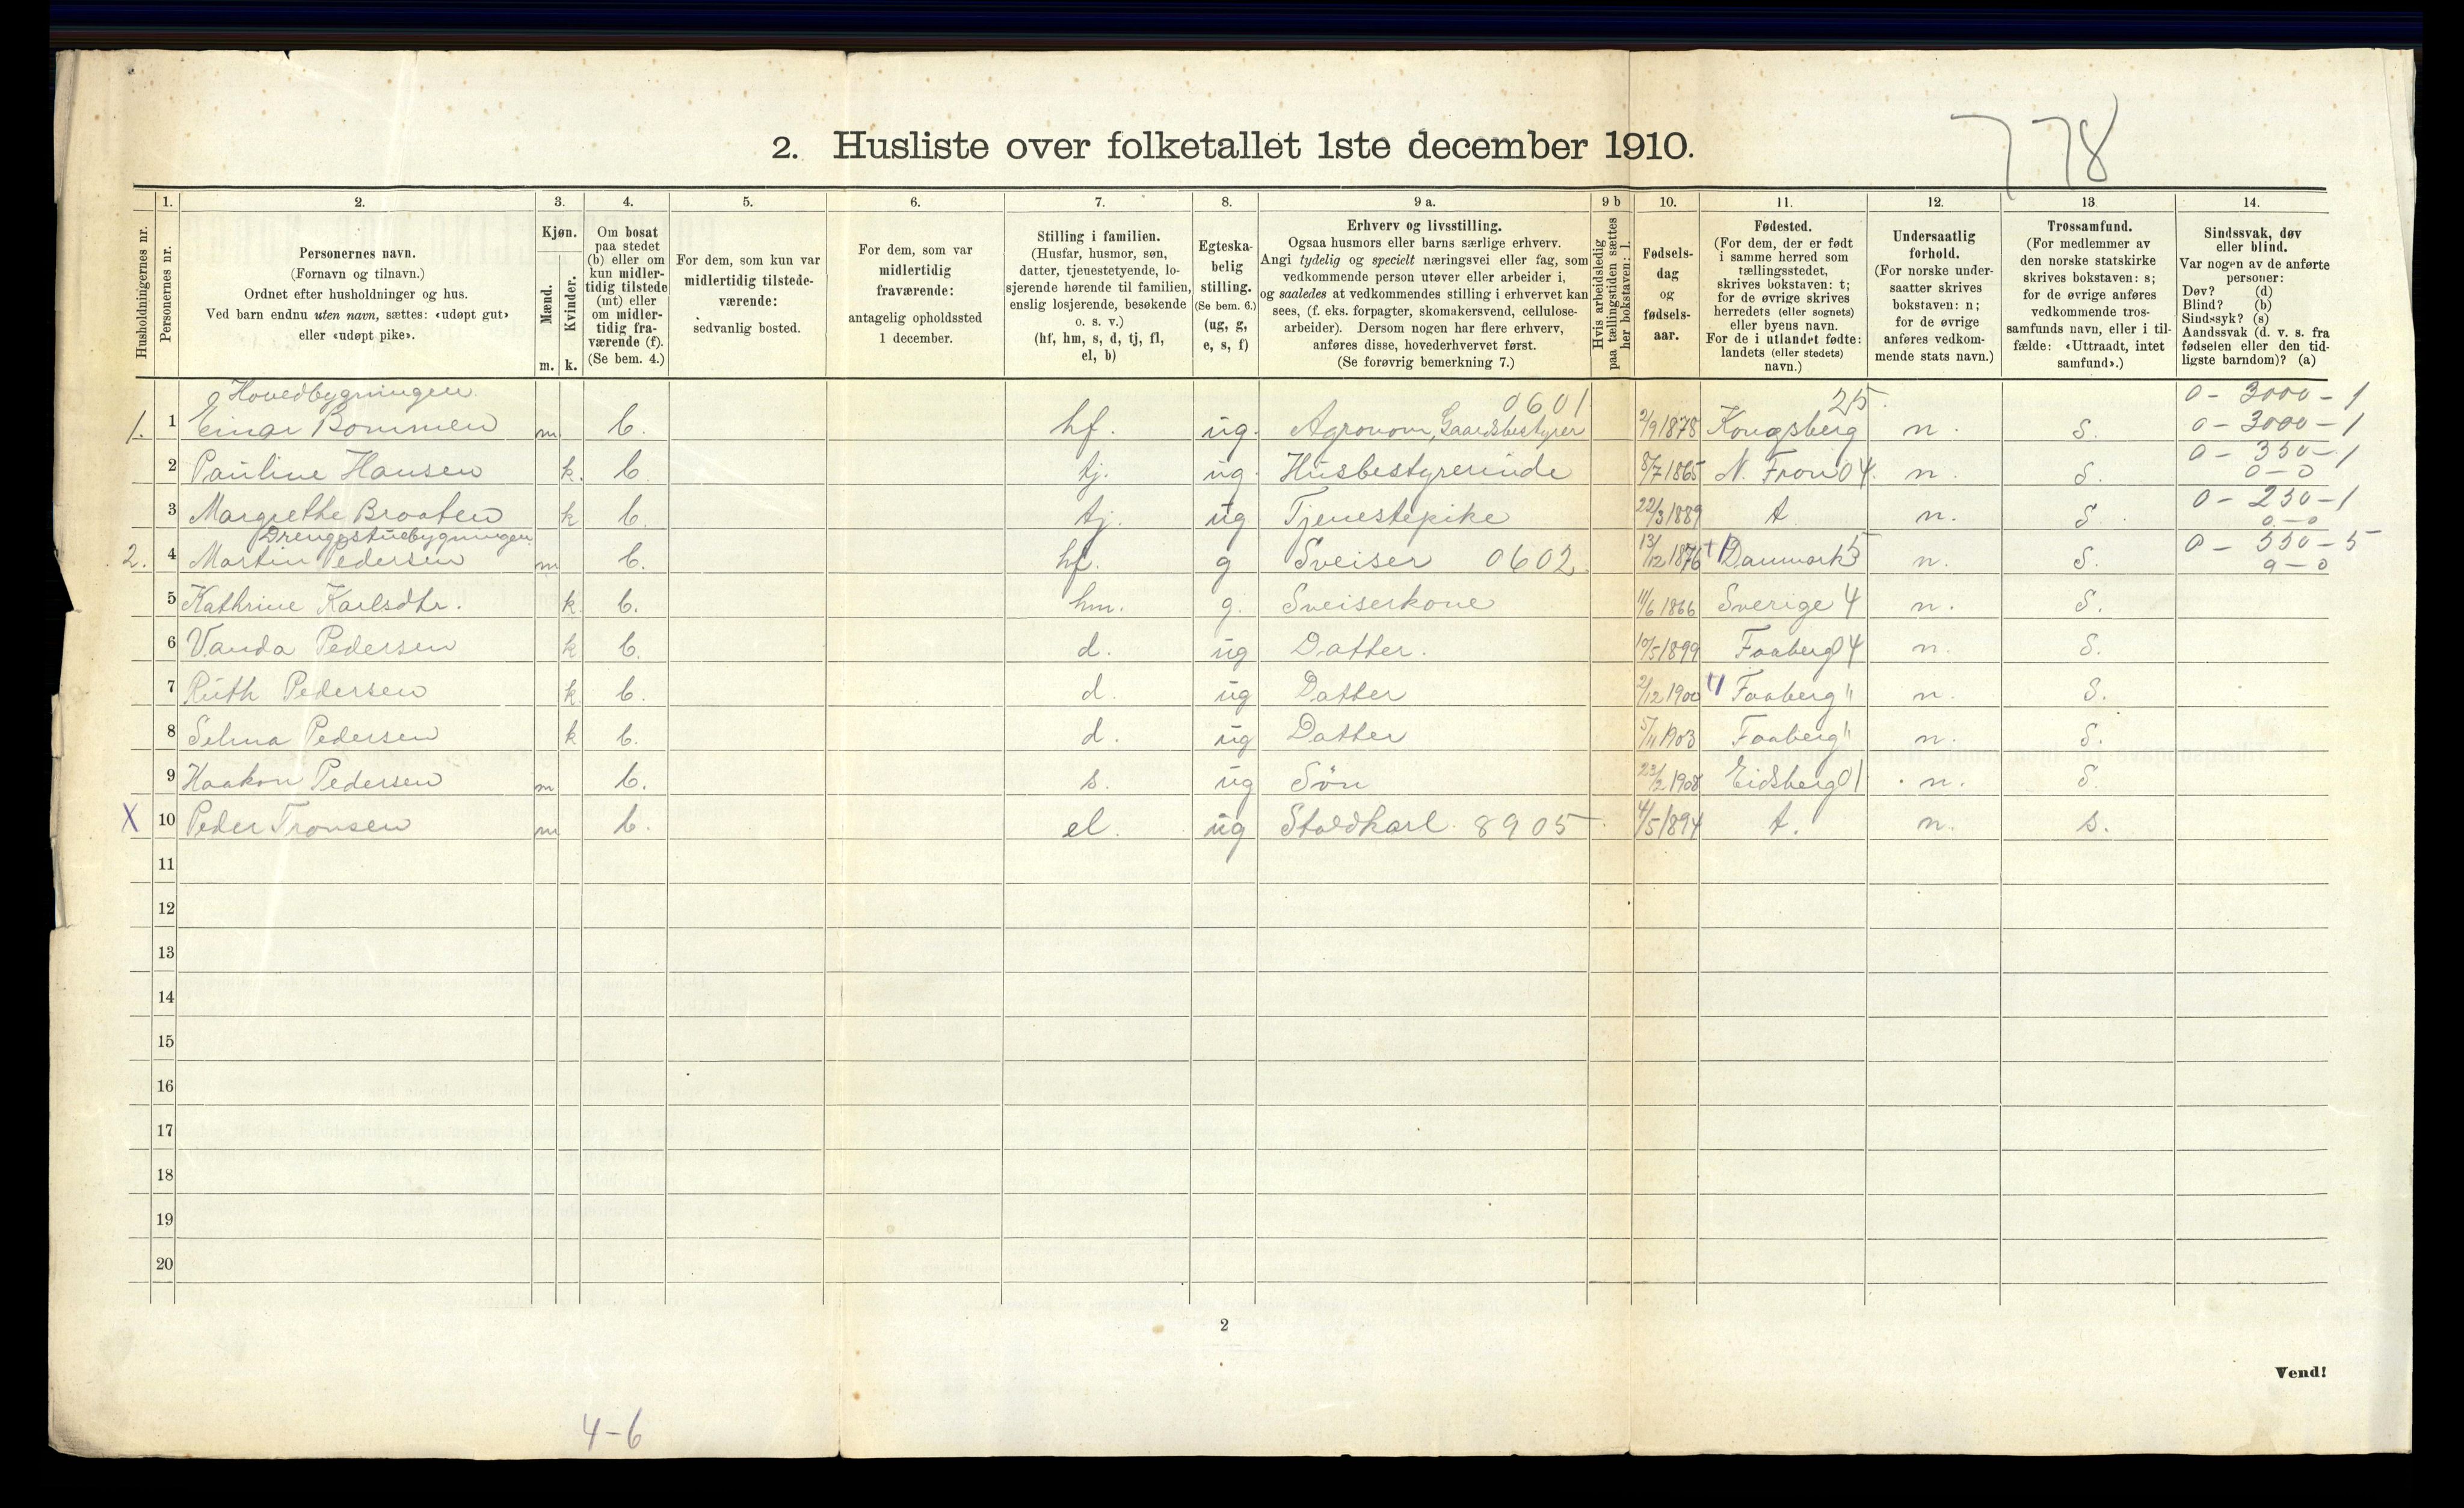 778
2. Husliste over folketallet 1ste december 1910.
Husholdningernes nr.
1. Personernes nr.
2. Personernes navn.
(Fornavn og tilnavn.)
Ordnet efter husholdninger og hus.
Ved barn endnu uten navn, sættes: «udøpt gut»
eller «udøpt pike».
3. Kjøn.
Mænd. m.
Kvinder. k.
4. Om bosat
paa stedet
(b) eller om
kun midler-
tidig tilstede
(mt) eller
om midler-
tidig fra-
værende (f).
(Se bem. 4.)
5. For dem, som kun var
midlertidig tilstede-
værende:
sedvanlig bosted.
6. For dem, som var
midlertidig
fraværende:
antagelig opholdssted
1 december.
7. Stilling i familien.
(Husfar, husmor, søn,
datter, tjenestetyende, lo-
sjerende hørende til familien,
enslig losjerende, besøkende
o. s. v.)
(hf, hm, s, d, tj, fl,
el, b)
8. Egteska-
belig
stilling.
(Se bem. 6.)
(ug, g,
e, s, f)
9 a. Erhverv og livsstilling.
Ogsaa husmors eller barns særlige erhverv.
Angi tydelig og specielt næringsvei eller fag, som
vedkommende person utøver eller arbeider i,
og saaledes at vedkommendes stilling i erhvervet kan
sees, (f. eks. forpagter, skomakersvend, cellulose-
arbeider). Dersom nogen har flere erhverv,
anføres disse, hovederhvervet først.
(Se forøvrig bemerkning 7.)
9 b Hvis arbeidsledig
paa tællingstiden sættes
her bokstaven: l.
10. Fødsels-
dag
og
fødsels-
aar.
11. Fødested.
(For dem, der er født
i samme herred som
tællingsstedet,
skrives bokstaven: t;
for de øvrige skrives
herredets (eller sognets)
eller byens navn.
For de i utlandet fødte:
landets (eller stedets)
navn.)
12. Undersaatlig
forhold.
(For norske under-
saatter skrives
bokstaven: n;
for de øvrige
anføres vedkom-
mende stats navn.)
13. Trossamfund.
(For medlemmer av
den norske statskirke
skrives bokstaven: s;
for de øvrige anføres
vedkommende tros-
samfunds navn, eller i til-
fælde: «Uttraadt, intet
samfund».)
14. Sindssvak, døv
eller blind.
Var nogen av de anførte
personer:
Døv? (d)
Blind? (b)
Sindssyk? (s)
Aandssvak (d. v. s. fra
fødselen eller den tid-
ligste barndom)? (a)
Hovedbygningen 0601 25. 0 - 3000 - 1
1. 1 Einar Bommen m b. hf. ug. Agronom, Gaardsbestyrer 2/9 1878 Kongsberg n. S. 0 - 3000 - 1
0 - 350 - 1
2 Pauline Hansen k. b. tj. ug. Husbestyrerinde 8/7 1865 N. Fron 04. n. S. 0 - 0
0 - 250 - 1
3 Margrethe Braaten k b. tj. ug Tjenestepike 22/3 1889 t n. S. 0 - 0
Drengestuebygningen 0 - 550 - 5
2. 4 Martin Pedersen m b. hf. g Sveiser 0602 13/12 1876 Danmark 5 n. S. 0 - 0
5 Kathrine Karlsdtr. k. b. hm. g. Sveiserkone 11/6 1866 Sverige 4 n. S.
6 Vanda Pedersen k b. d. ug Datter. 10/5 1899 Faaberg 04 n. S.
7 Ruth Pedersen k b. d. ug Datter 2/12 1900 Faaberg " n. S.
8 Selma Pedersen k b. d. ug Datter 5/11 1903 Faaberg " n. S.
9 Haakon Pedersen m b. s. ug Søn 23/2 1908 Eidsberg 01 n. S.
X 10 Peder Tronsen m b. el. ug Staldkarl 8905 4/5 1894 t. n. s.
11
12
13
14
15
16
17
18
19
20
2
Vend!
4-6